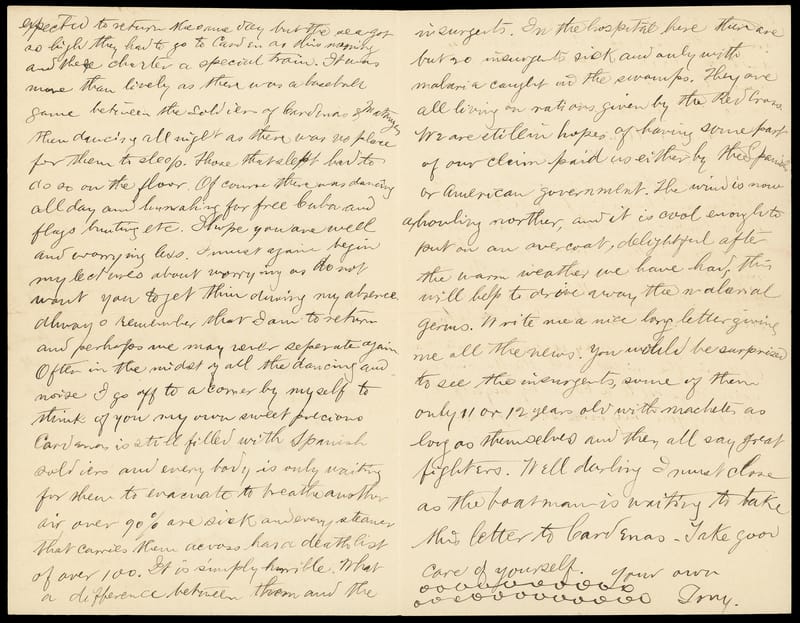 expected to return the same day but the sea got
so high they had to go to Cardenas this morning
and there charter a special train. It was
more than lively as there was a baseball
game between the soldiers of Cardenas & Matanzas
then dancing all night as there was no place
for them to sleep. Those that slept had to
do so on the floor. Of course there was dancing
all day and hurrahing for free Cuba and
flags bunting etc. I hope you are well
and worrying less. I must again begin
my lectures about worrying as do not
want you to get thin during my absence
always remember that I am to return
and perhaps we may never seperate again
Often in the midst of all the dancing and
noise I go off to a corner by myself to
think of you my own sweet precious
Cardenas is still filled with Spanish
soldiers and every body is only waiting
for them to evacuate to breathe another
air, over 90% are sick and every steamer
that carries them across has a death list
of over 100. It is simply horrible. What
a difference between them and the
insurgents. In the hospital here there are
but 20 insurgents sick and only with
malaria caught in the swamps. They are
all living on rations given by the Red Cross.
We are still in hopes of having some part
of our claim paid us either by the Spanish
or American government. The wind is now
a howling norther, and it is cool enough to
put on an overcoat, delightful after
the warm weather we have had, this
will help to drive away the malarial
germs. Write me a nice long letter giving
me all the news. You would be surprised
to see the insurgents, some of them
only 11 or 12 years old with machetes as
long as themselves and they all say great
fighters. Well darling I must close
as the boatman is waiting to take
this letter to Cardenas - Take good
care of yourself. Your own
ooooooooooo
oooooooooooo Tony.